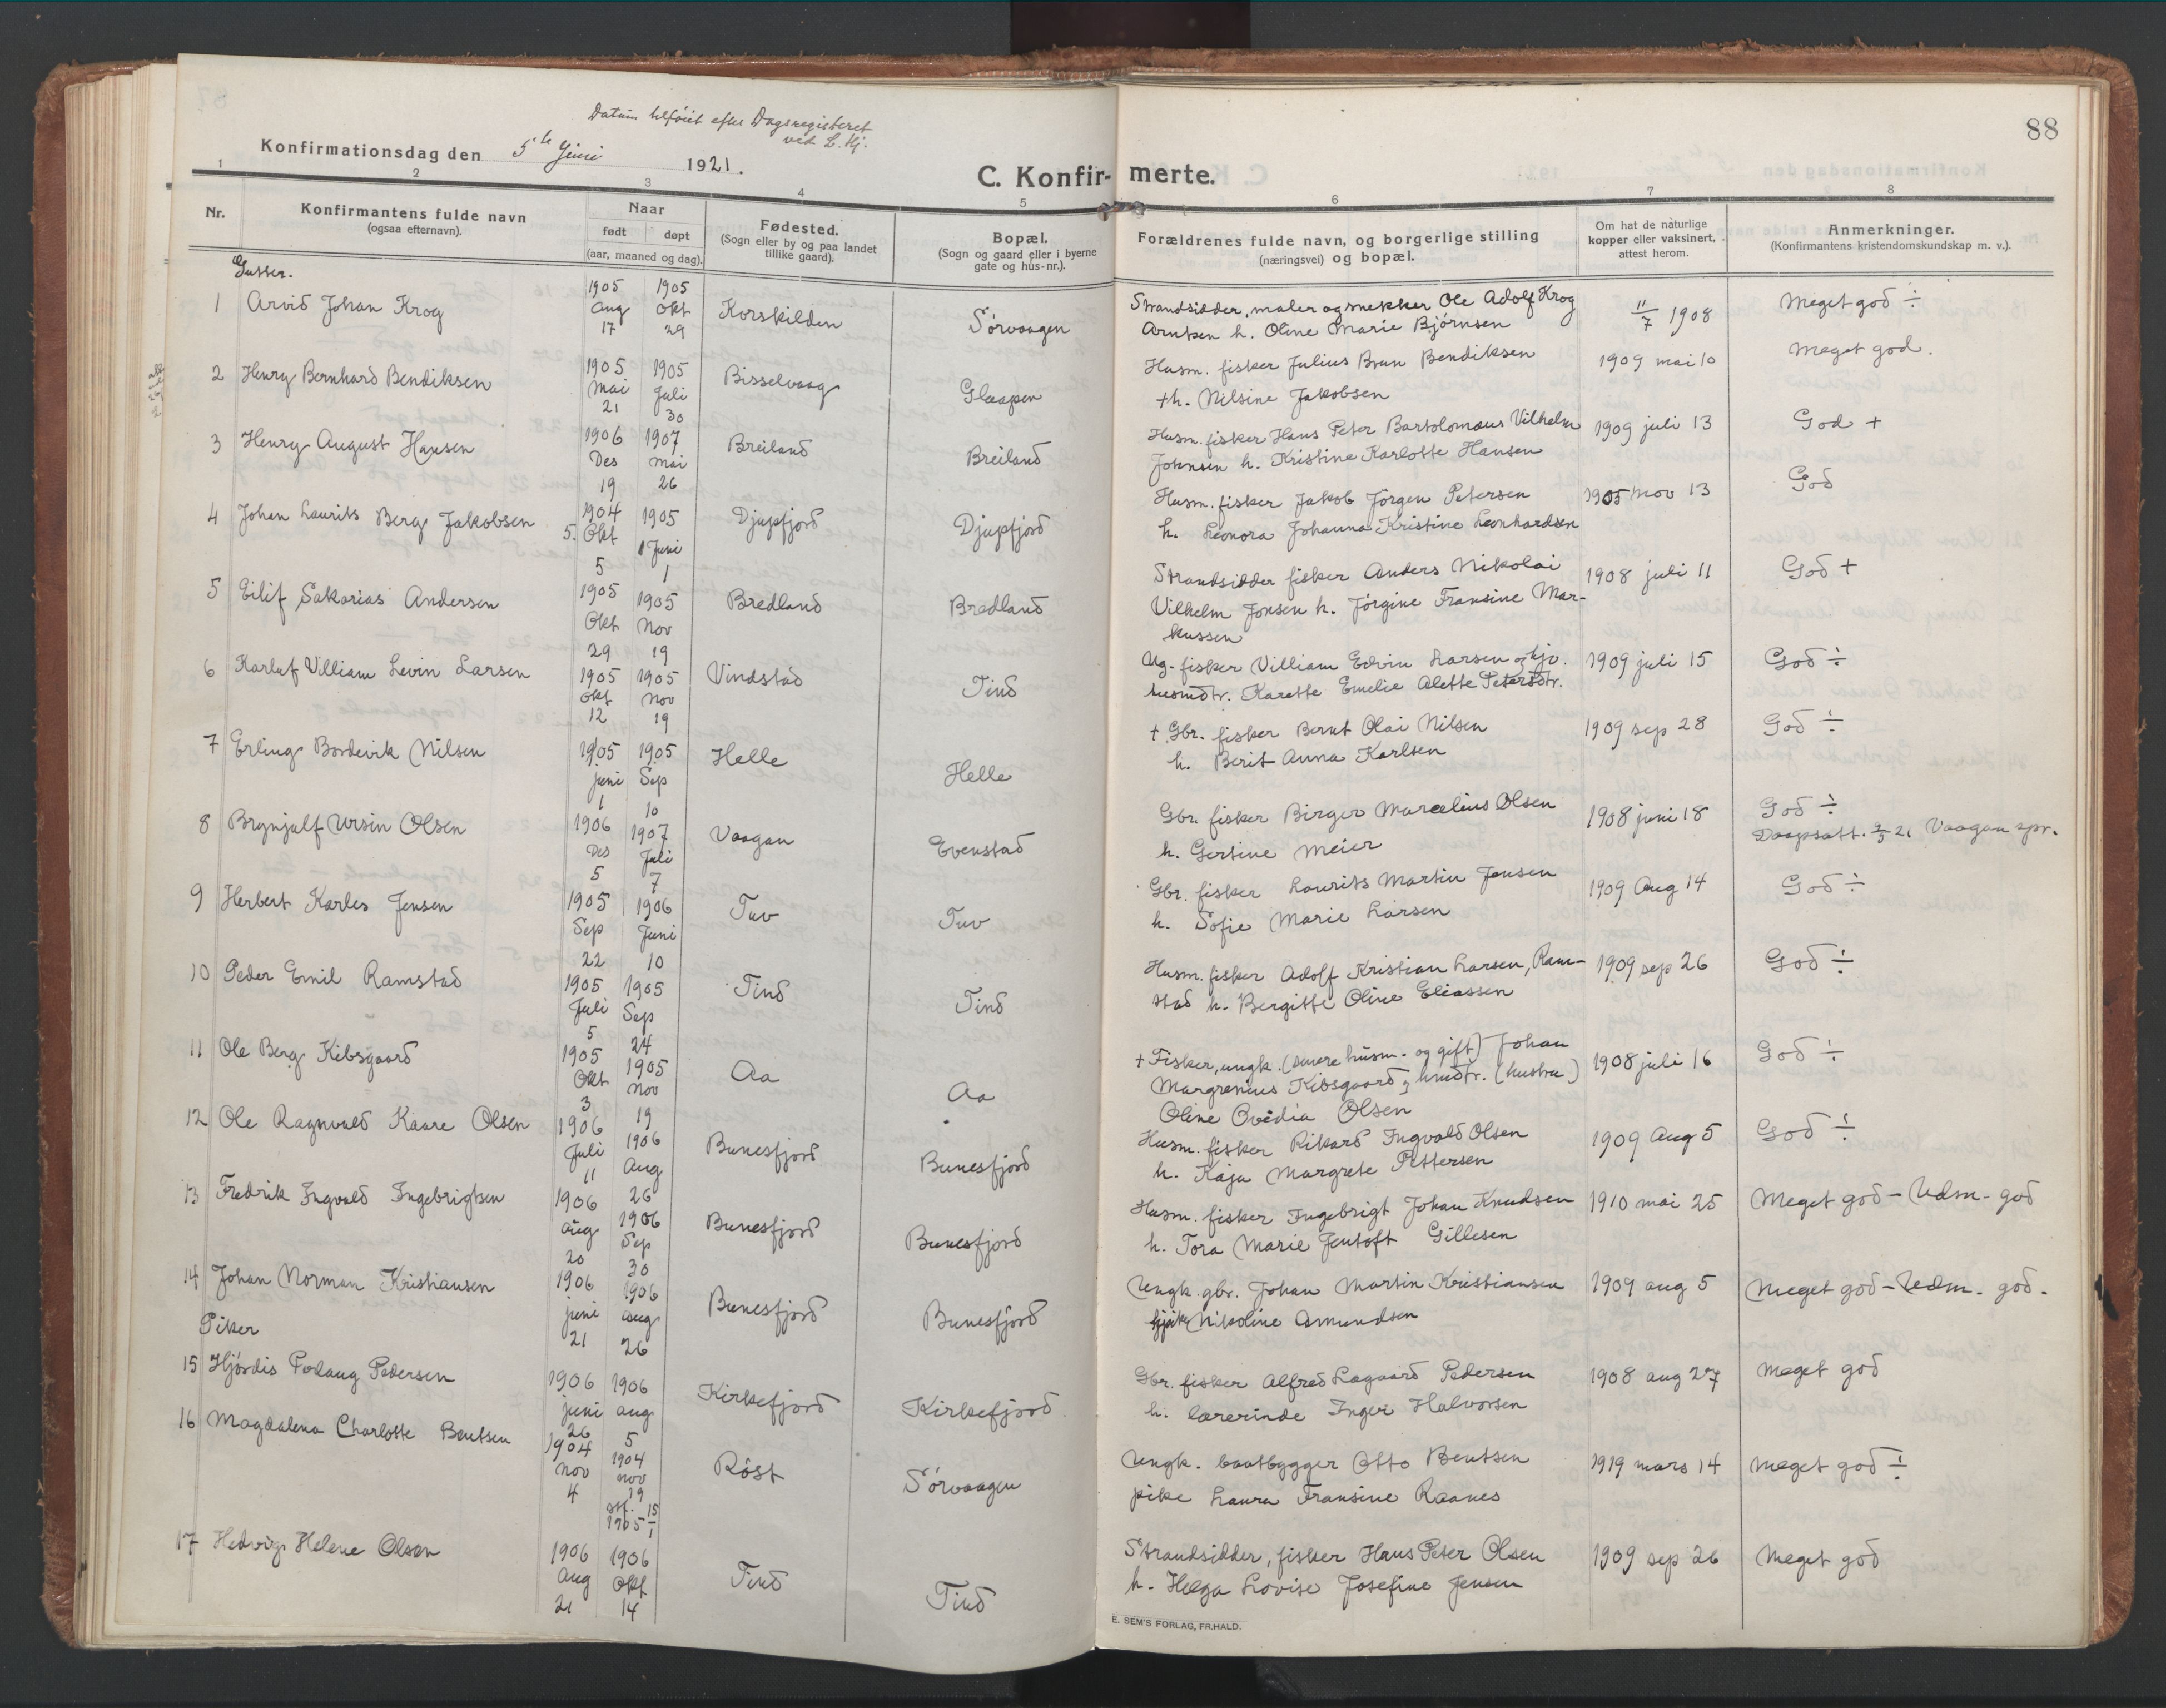 88
Datum tilföiet efter Dagsregisteret
ved L. Hj.
Konfirmationsdag den 5te Juni 1921.
C. Konfir- merte.
1 2 3 4 5 6 7 8
Nr. Konfirmantens fulde navn (ogsaa efternavn). Naar født døpt (aar, maaned og dag). Fødested. (Sogn eller by og paa landet tillike gaard). Bopæl. (Sogn og gaard eller i byerne gate og hus-nr.). Forældrenes fulde navn, og borgerlige stilling (næringsvei) og bopæl. Om hat de naturlige kopper eller vaksinert, attest herom. Anmerkninger. (Konfirmantens kristendomskundskap m. v.).
Gutter.
1 Arvid Johan Krog 1905 Aug 17 1905 Okt 29 Korskilden Sörvaagen Strandsidder, maler og snekker Ole Adolf Krog
Arntzen h. Oline Marie Björnsen 11/7 1908 Meget god ÷
2 Henry Bernhard Bendiksen 1905 Mai 21 1905 Juli 30 Bisselvaag Glaapen Husm. fisker Julius Brun Bendiksen
+ h. Nilsine Jakobsen 1909 mai 10 Meget god.
3 Henry August Hansen 1906 Des 19 1907 Mai 26 Breiland Breiland Husm. fisker Hans Peter Bartolomæus Vilhelm
Johnsen h. Kristine Karlotte Hansen 1909 juli 13 God +
4 Johan Laurits Berg Jakobsen 1904 5. Okt 5 1905 1 Juni 1 Djupfjord Djupfjord Husm. fisker Jakob Jörgen Petersen
h. Leonora Johanna Kristine Leonhardsen 1905 Nov 13 God
5 Eilif Sakarias Andersen 1905 Okt 29 1905 Nov 19 Bredland Bredland Strandsidder fisker Anders Nikolai
Vilhelm Jonsen h. Jörgine Fransine Mar-
kussen 1908 juli 11 God +
6 Karluf Villiam Levin Larsen 1905 Okt 12 1905 Nov 19 Vindstad Tind Ug- fisker Villiam Edvin Larsen og hjv.
husmdtr. Karette Emelie Alette Petersdtr. 1909 juli 15 God ÷
7 Erling Bordevik Nilsen 1905 Juni 1 1905 Sep 10 Helle Helle + Gbr. fisker Bernt Olai Nilsen
h. Berit Anna Karlsen 1909 sep 28 God ÷
8 Brynjulf Ursin Olsen 1906 Des 5 1907 Juli 7 Vaagan Evenstad Gbr. fisker Birger Marcelius Olsen
h. Gertine Meier 1908 juni 18 God ÷
Daapsatt. 2/5 21 Vaagan spr.
9 Herbert Karles Jensen 1905 Sep 22 1906 Juni 10 Tuv Tuv Gbr. fisker Laurits Martin Jensen
h. Sofie Marie Larsen 1909 Aug 14 God ÷
10 Peder Emil Ramstad 1905 Juli 5 1905 Sep 24 Tind Tind Husm. fisker Adolf Kristian Larsen, Ram-
stad h. Bergitte Oline Eliassen 1909 sep 26 God ÷
11 Ole Berg Kibsgaard 1905 Okt 3 1905 Nov 19 Aa Aa + Fisker, ungk. (senere husm. og gift) Johan
Margrenius Kibsgaard og hmdtr. (hustru)
Oline Ovedia Olsen 1908 juli 16 God ÷
12 Ole Ragnvald Kaare Olsen 1906 Juli 11 1906 Aug 26 Bunesfjord Bunesfjord Husm. fisker Rikard Ingvald Olsen
h. Kaja Margrete Pettersen 1909 Aug 5 God ÷
13 Fredrik Ingvald Ingebrigtsen 1906 Aug 20 1906 Sep 30 Bunesfjord Bunesfjord Husm. fisker Ingebrigt Johan Knudsen
h. Tora Marie Jentoft Gillesen 1910 mai 25 Meget god - Udm- god
14 Johan Norman Kristiansen 1906 juni 21 1906 aug 26 Bunesfjord Bunesfjord Ungk. gbr. Johan Martin Kristiansen
Nikoline Amundsen 1909 aug 5 Meget god - Udm. god.
Piker
15 Hjördis Fodaug Pedersen 1906 juni 26 1906 aug 5 Kirkefjord Kirkefjord Gbr. fisker Alfred Lagaard Pedersen
h. lærerinde Inger Halvorsen 1908 aug 27 Meget god
16 Magdalena Charlotte Bentsen 1904 nov 4 1904 nov 19 stf. 15/1 1905 Röst Sörvaagen Ungk. baatbygger Otto Bentsen
pike Laura Fransine Raanes 1919 mars 14 Meget god ÷
17 Hedvig Helene Olsen 1906 Aug 21 1906 Okt 14 Tind Tind Strandsidder, fisker Hans Peter Olsen
h. Helga Lovise Josefine Jensen 1909 sep 26 Meget god
E. SEM'S FORLAG, FR.HALD.